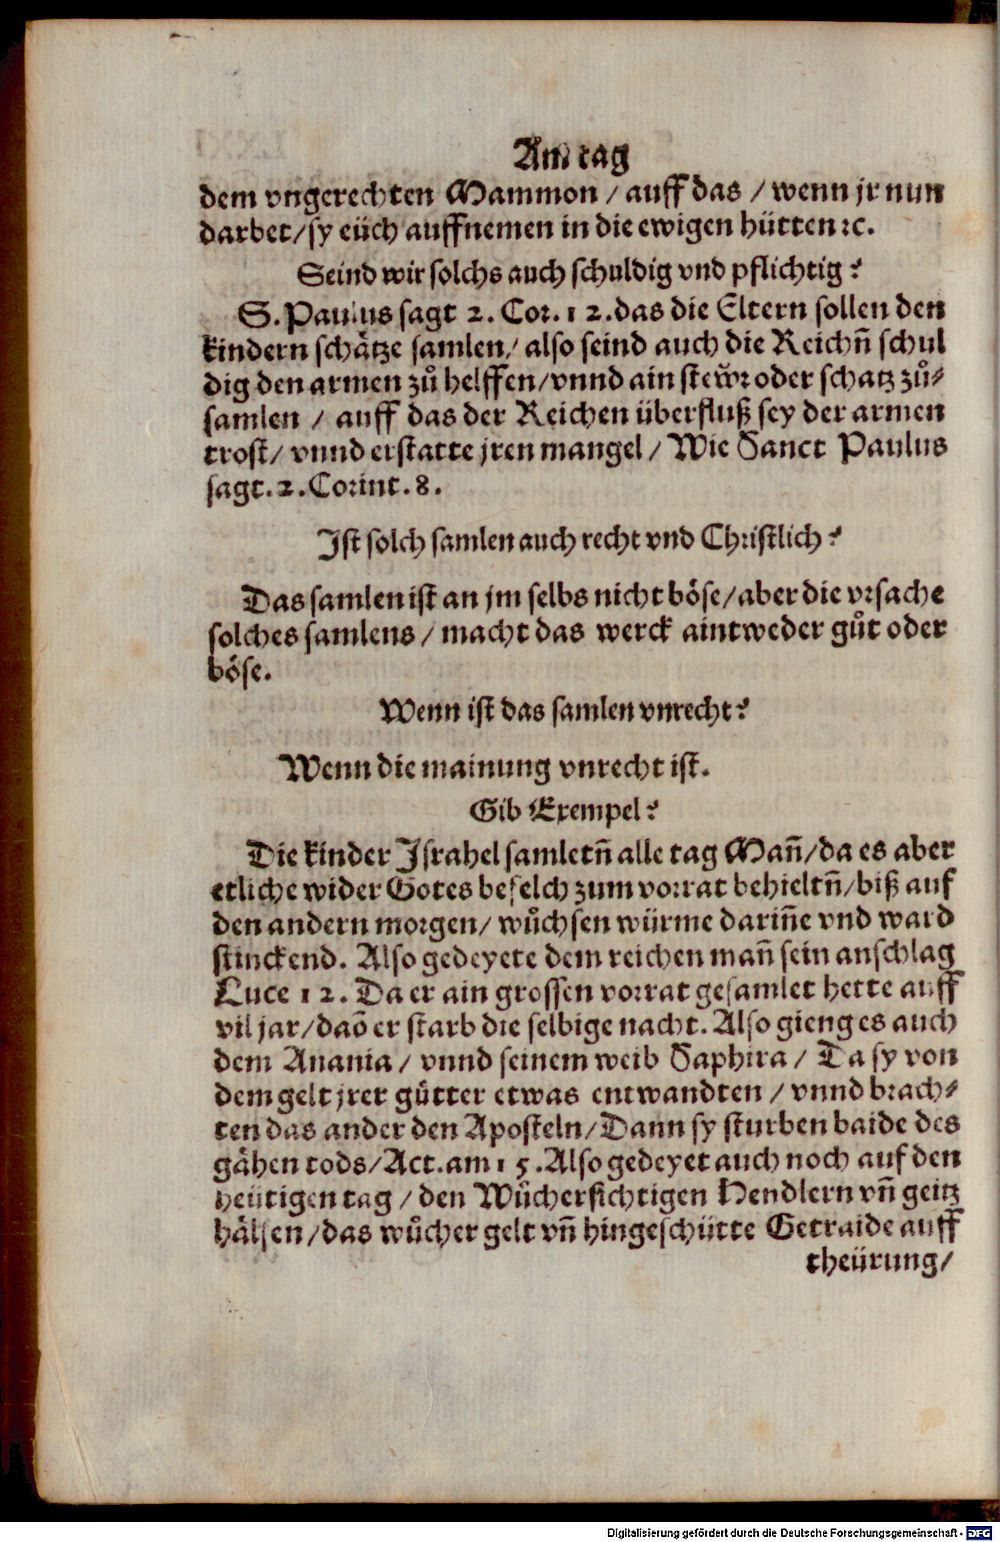 Am tag
dem vngerechten Mammon / auff das / wenn jr nun
darbet / sy eüch auffnemen in die ewigen hütten ꝛc.
Seind wir solchs auch schuldig vnd pflichtig?
S. Paulus sagt 2. Cor. 12. das die Eltern sollen den
kindern schätze samlen / also seind auch die Reichñ schul
dig den armen zůhelffen / vnnd ain stewr oder schatz zů-
samlen / auff das der Reichen überfluß sey der armen
trost / vnnd erstatte jren mangel / Wie Sanct Paulus
sagt. 2. Corint. 8.
Ist solch samlen auch recht vnd Christlich?
Das samlen ist an jm selbs nicht böse / aber die vrsache
solches samlens / macht das werck aintweder gůt oder
böse.
Wenn ist das samlen vnrecht?
Wenn die mainung vnrecht ist.
Gib Exempel?
Die kinder Israhel samletñ alle tag Mañ / da es aber
etliche wider Gotes befelch zum vorrat behieltñ / biß auf
den andern morgen / wůchsen würme dariñe vnd ward
stinckend. Also gedeyete dem reichen mañ sein anschlag
Luce 12. Da er ain grossen vorrat gesamlet hette auff
vil jar / daõ er starb die selbige nacht. Also gieng es auch
dem Anania / vnnd seinem weib Saphira / Da sy von
dem gelt jrer gütter etwas entwandten / vnnd brach-
ten das ander den Aposteln / Dann sy sturben baide des
gähen tods / Act. am 15. Also gedeyet auch noch auf den
heütigen tag / den Wůchersichtigen Hendlern vñ geitz
hälsen / das wůcher gelt vñ hingeschütte Getraide auff
theürung /
Digitalisierung gefördert durch die Deutsche Forschungsgemeinschaft - DFG